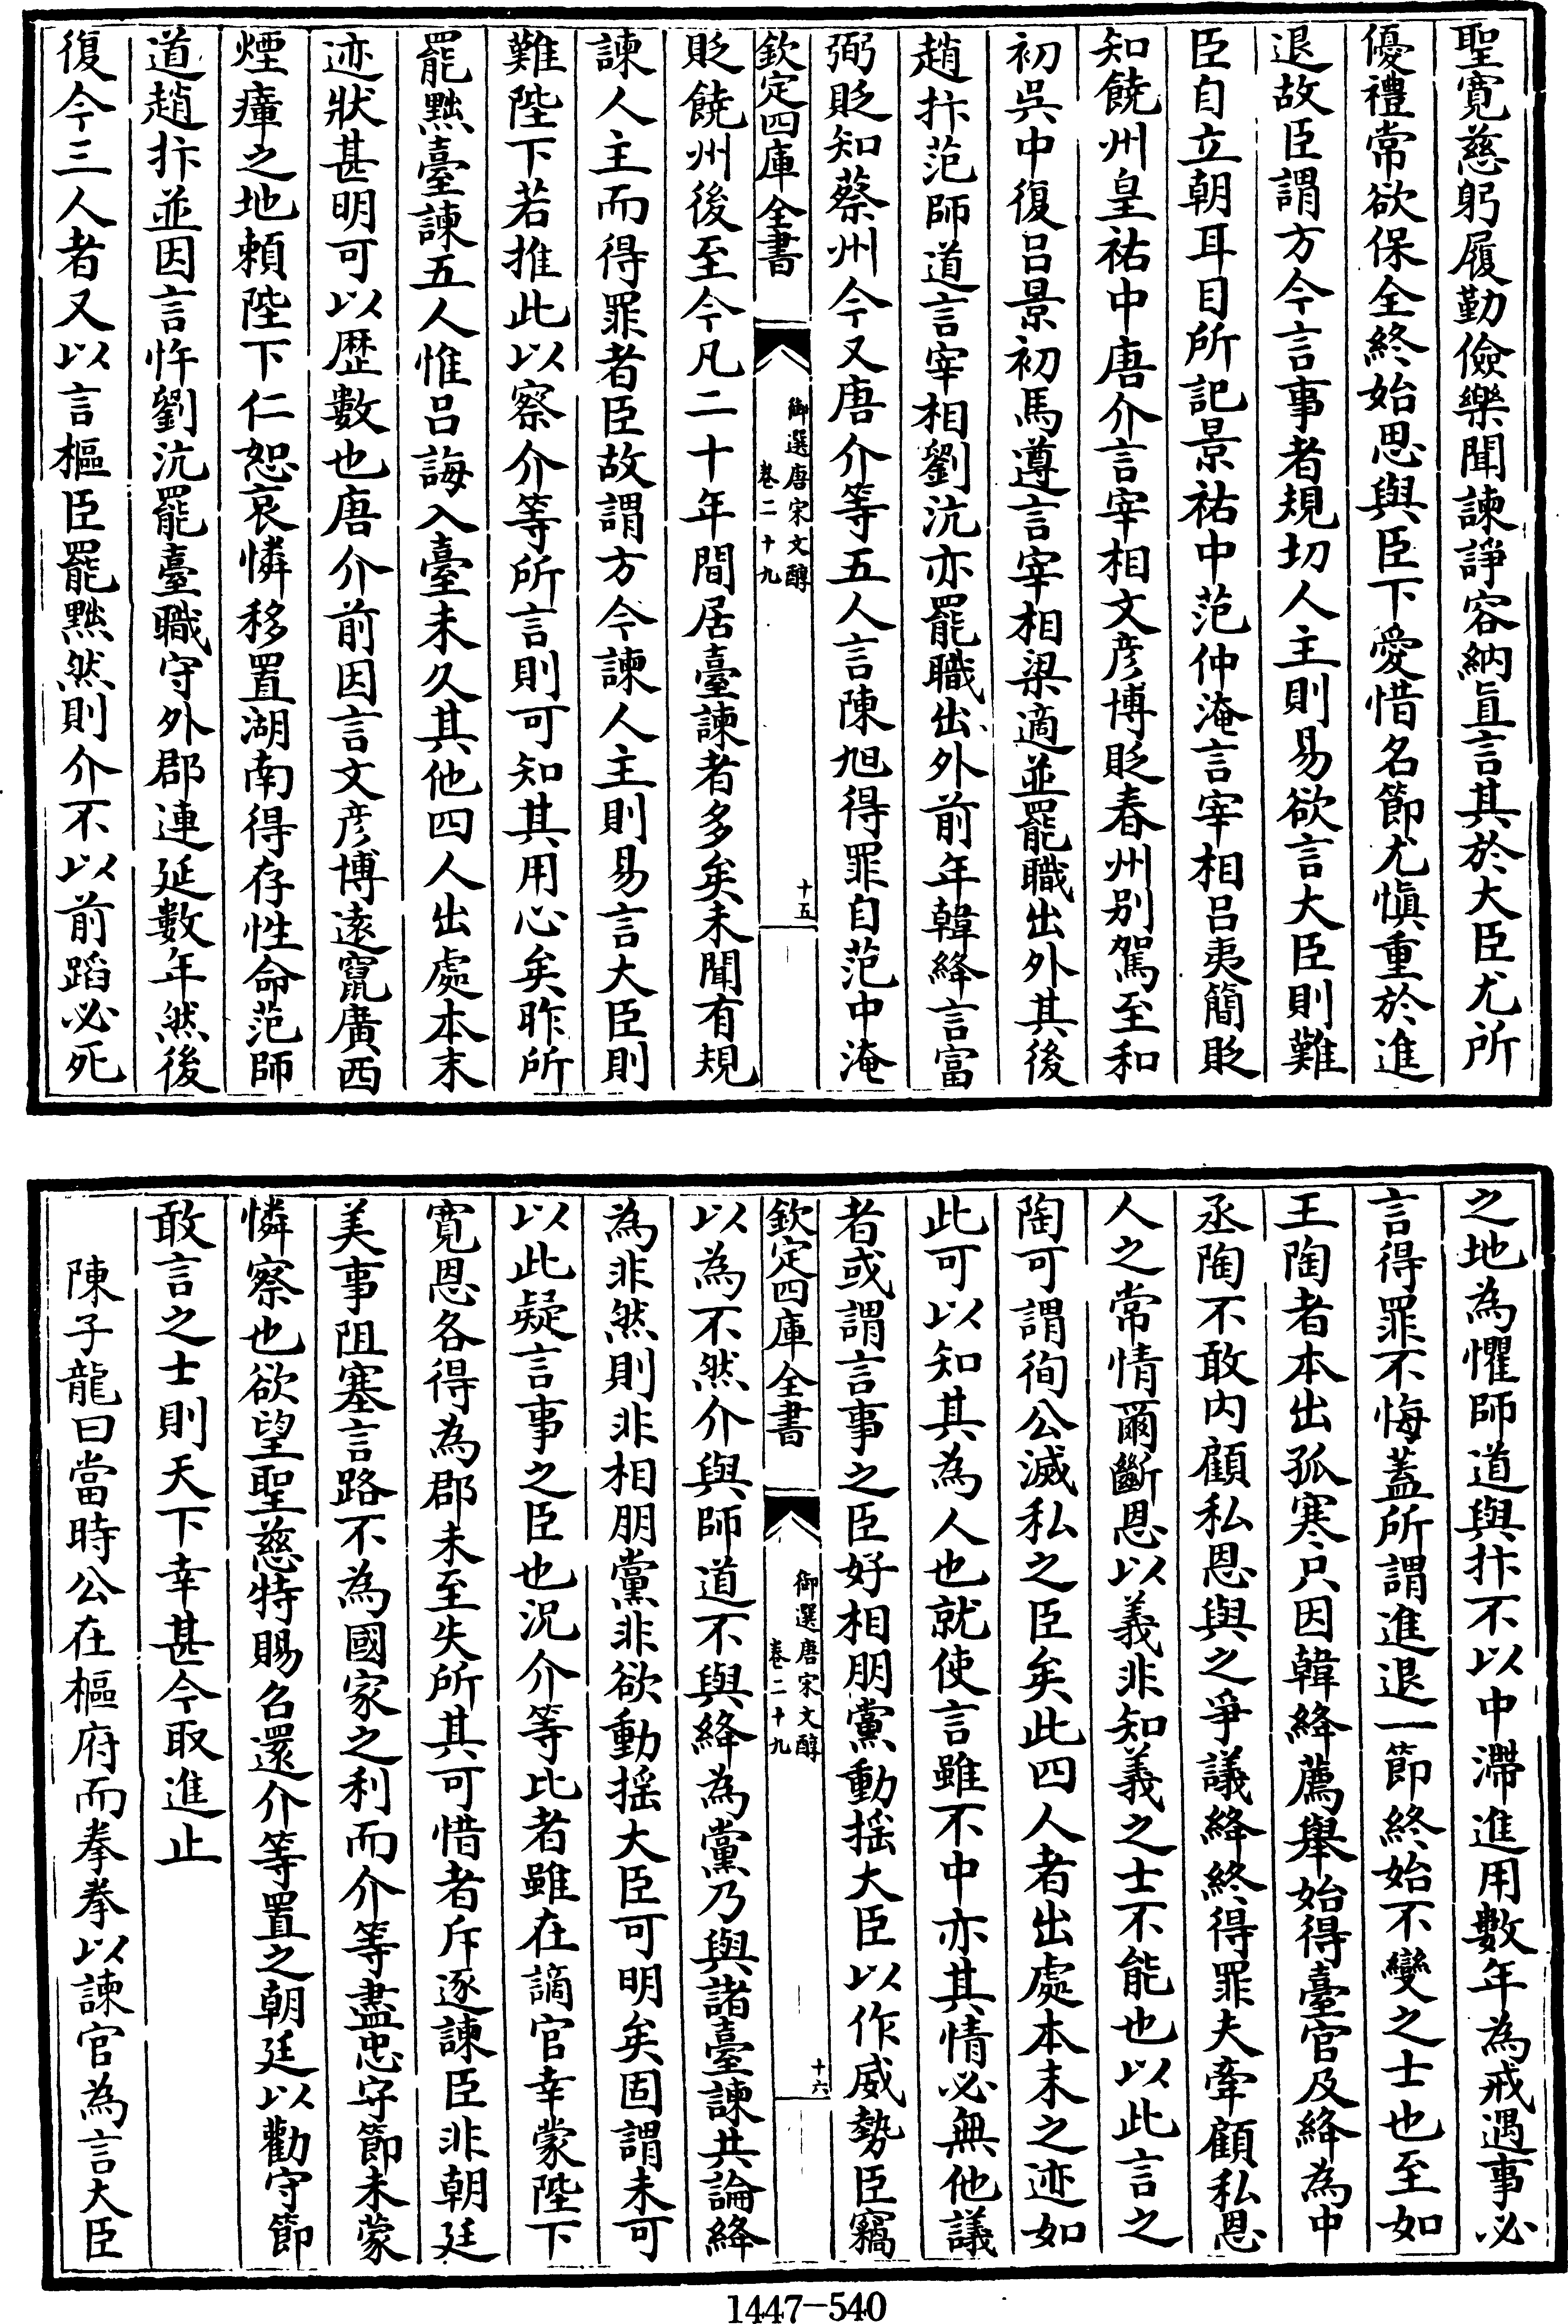 聖寬慈躬履勤儉樂聞諫諍容納直言其於大臣尤所
優禮常欲保全終始思與臣下愛惜名節尤慎重於進
退故臣謂方今言事者規切人主則易欲言大臣則難
臣自立朝耳目所記景祐中范仲淹言宰相吕夷簡貶
知饒州皇祐中唐介言宰相文彦博貶春州别駕至和
初吳中復吕景初馬遵言宰相梁適並罷職出外其後
趙抃范師道言宰相劉沆亦罷職出外前年韓絳言富
弼貶知蔡州今又唐介等五人言陳旭得罪自范仲淹
欽定四庫全書
御選唐宋文醇
卷二十九
十五
貶饒州後至今凡二十年間居臺諫者多矣未聞有規
諫人主而得罪者臣故謂方今諫人主則易言大臣則
難陛下若推此以察介等所言則可知其用心矣昨所
罷黜臺諫五人惟吕誨入臺未久其他四人出處本末
迹狀甚明可以歴數也唐介前因言文彦博遠竄廣西
煙瘴之地頼陛下仁恕哀憐移置湖南得存性命范師
道趙抃並因言忤劉沆罷臺職守外郡連延數年然後
復今三人者又以言樞臣罷黜然則介不以前蹈必死
之地為懼師道與抃不以中滯進用數年為戒遇事必
言得罪不悔蓋所謂進退一節終始不變之士也至如
王陶者本出孤寒只因韓絳薦舉始得臺官及絳為中
丞陶不敢内顧私恩與之爭議絳終得罪夫牽顧私恩
人之常情爾斷恩以義非知義之士不能也以此言之
陶可謂徇公滅私之臣矣此四人者出處本末之迹如
此可以知其為人也就使言雖不中亦其情必無他議
者或謂言事之臣好相朋黨動揺大臣以作威勢臣竊
欽定四庫全書
御選唐宋文醇
卷二十九
十六
以為不然介與師道不與絳為黨乃與諸臺諫共論絳
為非然則非相朋黨非欲動揺大臣可明矣固謂未可
以此疑言事之臣也況介等比者雖在謫官幸蒙陛下
寛恩各得為郡未至失所其可惜者斥逐諫臣非朝廷
美事阻塞言路不為國家之利而介等盡忠守節未蒙
憐察也欲望聖慈特賜召還介等置之朝廷以勸守節
敢言之士則天下幸甚今取進止
陳子龍曰當時公在樞府而拳拳以諫官為言大臣
1447—540